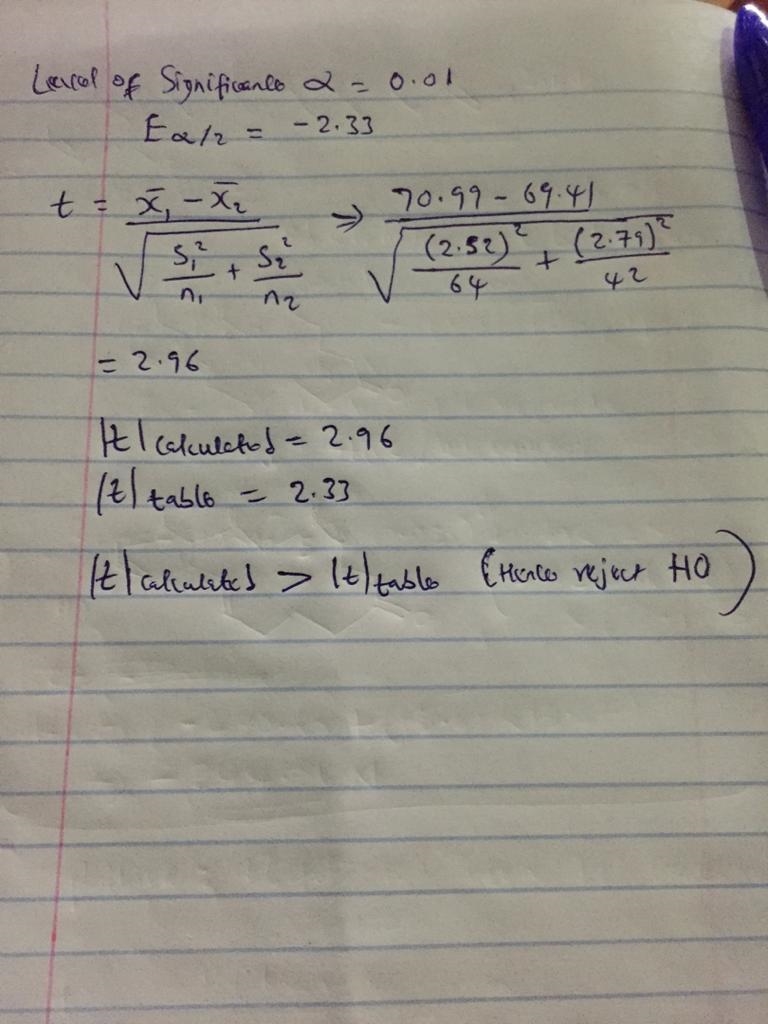 Level of Significance α = 0.01
Eα/2 = -2.33
t = x̄₁ - x̄₂ / √(S₁²/n₁ + S₂²/n₂) ⇒ 70.99 - 69.41 / √((2.52)²/64 + (2.79)²/42)
= 2.96
|t| calculated = 2.96
|t| table = 2.33
|t| calculated > |t| table (Hence reject H0)